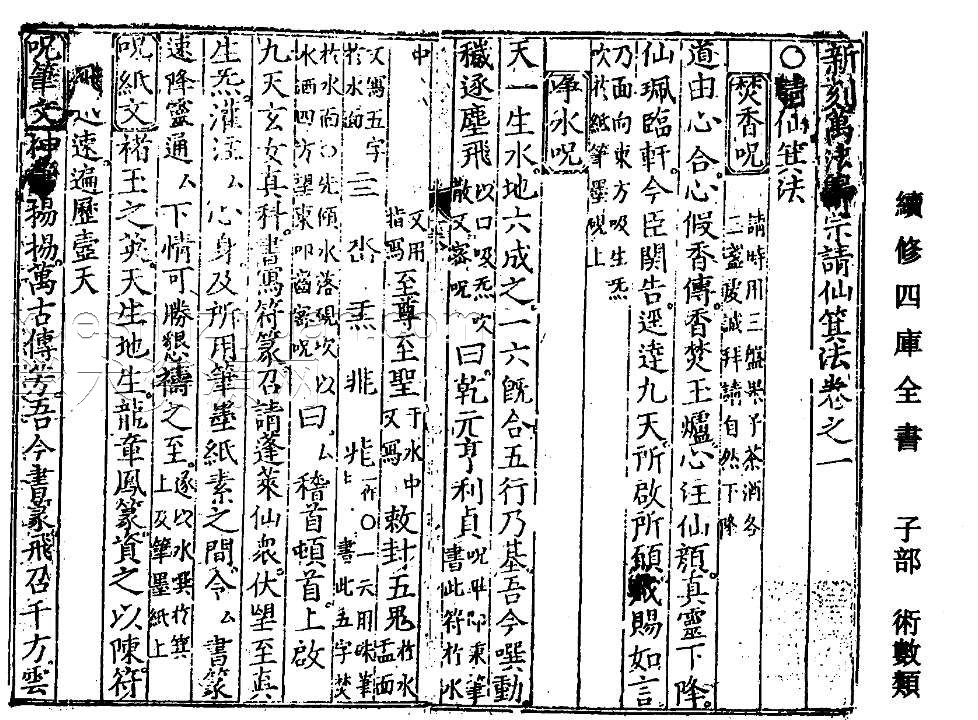 續修四庫全書 子部 術數類
新刻萬法歸宗請仙箕法卷之一
○請仙箕法
焚香呪 請時用三盤果子茶酒各三盞虔誠拜請自然下降
道由心合心假香傳香焚玉爐心注仙顏真靈下降
仙珮臨軒今臣關告逕達九天所啟所願咸賜如言
乃面向東方吸生炁吹於紙筆墨硯上
淨水呪
天一生水地六成之一六既合五行乃基吾今噀動
穢逐塵飛 以口吸炁吹散又密呪 曰乾元亨利貞 呪畢即東筆書此符於水
中 又用指寫 至尊至聖 于水中又寫 敕封五鬼 於水盂面
又寫五字於水面 书此五字焚
於水面○先傾水落硯次以水洒四方望東叩齒密呪 曰稽首頓首上啟
九天玄女真科書寫符篆召請蓬萊仙衆伏望至真
生炁灌注厶心身及所用筆墨紙素之間令厶書篆
速降靈通厶下情可勝懇禱之至 逐以水噀於箕上及筆墨紙上
呪紙文 楮玉之英天生地生龍章鳳篆資之以陳符
飛 速遍歷盡天
呪筆文 神 揚揚萬古傳芳吾今書篆飛召千方雲